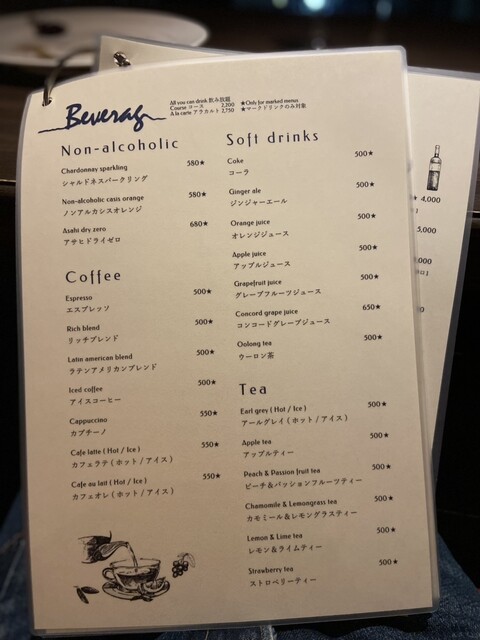 Beverag
All you can drink 飲み放題
Course コース 2,200
A la carte アラカルト 2,750
★Only for marked menus
★マークドリンクのみ対象
Non-alcoholic
Chardonnay sparkling 580★
シャルドネスパークリング
Non-alcoholic casis orange 580★
ノンアルカシスオレンジ
Asahi dry zero 680★
アサヒドライゼロ
Coffee
Espresso 500★
エスプレッソ
Rich blend 500★
リッチブレンド
Latin american blend 500★
ラテンアメリカンブレンド
Iced coffee 500★
アイスコーヒー
Cappuccino 550★
カプチーノ
Cafe latte ( Hot / Ice ) 550★
カフェラテ ( ホット / アイス )
Cafe au lait ( Hot / Ice ) 550★
カフェオレ ( ホット / アイス )
Soft drinks
Coke 500★
コーラ
Ginger ale 500★
ジンジャーエール
Orange juice 500★
オレンジジュース
Apple juice 500★
アップルジュース
Grapefruit juice 500★
グレープフルーツジュース
Concord grape juice 650★
コンコードグレープジュース
Oolong tea 500★
ウーロン茶
Tea
Earl grey ( Hot / Ice ) 500★
アールグレイ ( ホット / アイス )
Apple tea 500★
アップルティー
Peach & Passion fruit tea 500★
ピーチ＆パッションフルーツティー
Chamomile & Lemongrass tea 500★
カモミール＆レモングラスティー
Lemon & Lime tea 500★
レモン＆ライムティー
Strawberry tea 500★
ストロベリーティー
★ 4,000
5,000